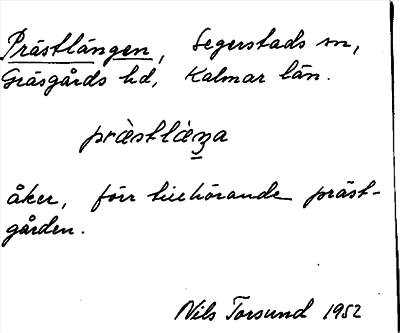 Prästlängen, Segerstads sn,
Gräsgårds hd, Kalmar län.
præ̀stlæ̀ŋa
åker, förr tillhörande präst-
gården.
Nils Torsund 1952